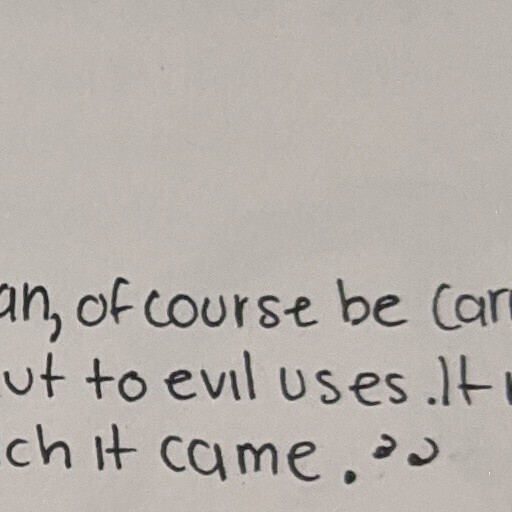 an, of course be car
ut to evil uses. It
ch it came."